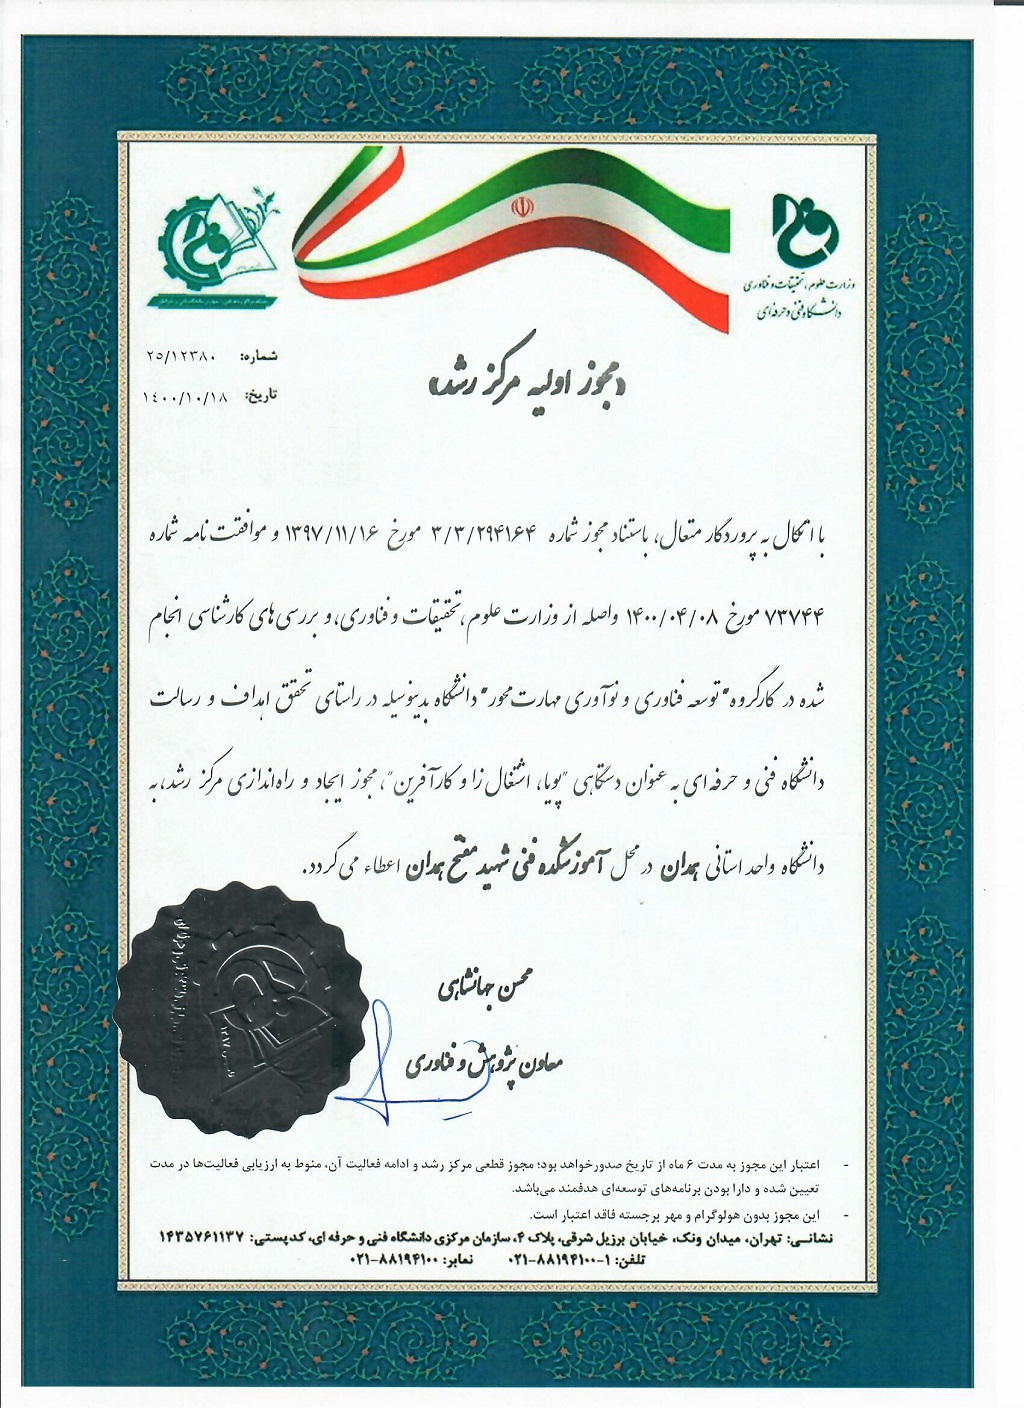 وزارت علوم، تحقیقات و فناوری
دانشگاه فنی و حرفه‌ای
شماره: ۲۵/۱۲۳۸۰
تاریخ: ۱۴۰۰/۱۰/۱۸
«مجوز اولیه مرکز رشد»
با اتکال به پروردگار متعال، باستناد مجوز شماره ۳/۳/۲۹۴۱۶۴ مورخ ۱۳۹۷/۱۱/۱۶ و موافقت نامه شماره
۷۳۷۴۴ مورخ ۱۴۰۰/۰۴/۰۸ واصله از وزارت علوم، تحقیقات و فناوری، و بررسی های کارشناسی انجام
شده در کارگروه "توسعه فناوری و نوآوری مهارت محور" دانشگاه بدینوسیله در راستای تحقق اهداف و رسالت
دانشگاه فنی و حرفه ای به عنوان دستگاهی "پویا، اشتغال زا و کارآفرین"، مجوز ایجاد و راه‌اندازی مرکز رشد، به
دانشگاه واحد استانی همدان در محل آموزشکده فنی شهید مفتح همدان اعطاء می گردد.
محسن جهانشاهی
معاون پژوهش و فناوری
- اعتبار این مجوز به مدت ۶ ماه از تاریخ صدور خواهد بود؛ مجوز قطعی مرکز رشد و ادامه فعالیت آن، منوط به ارزیابی فعالیت‌ها در مدت
تعیین شده و دارا بودن برنامه‌های توسعه‌ای هدفمند می‌باشد.
- این مجوز بدون هولوگرام و مهر برجسته فاقد اعتبار است.
نشانی: تهران، میدان ونک، خیابان برزیل شرقی، پلاک ۴، سازمان مرکزی دانشگاه فنی و حرفه ای، کدپستی: ۱۴۳۵۷۶۱۱۳۷
تلفن: ۱-۰۲۱-۸۸۱۹۴۱۰۰ نمابر: ۰۲۱-۸۸۱۹۴۱۰۰